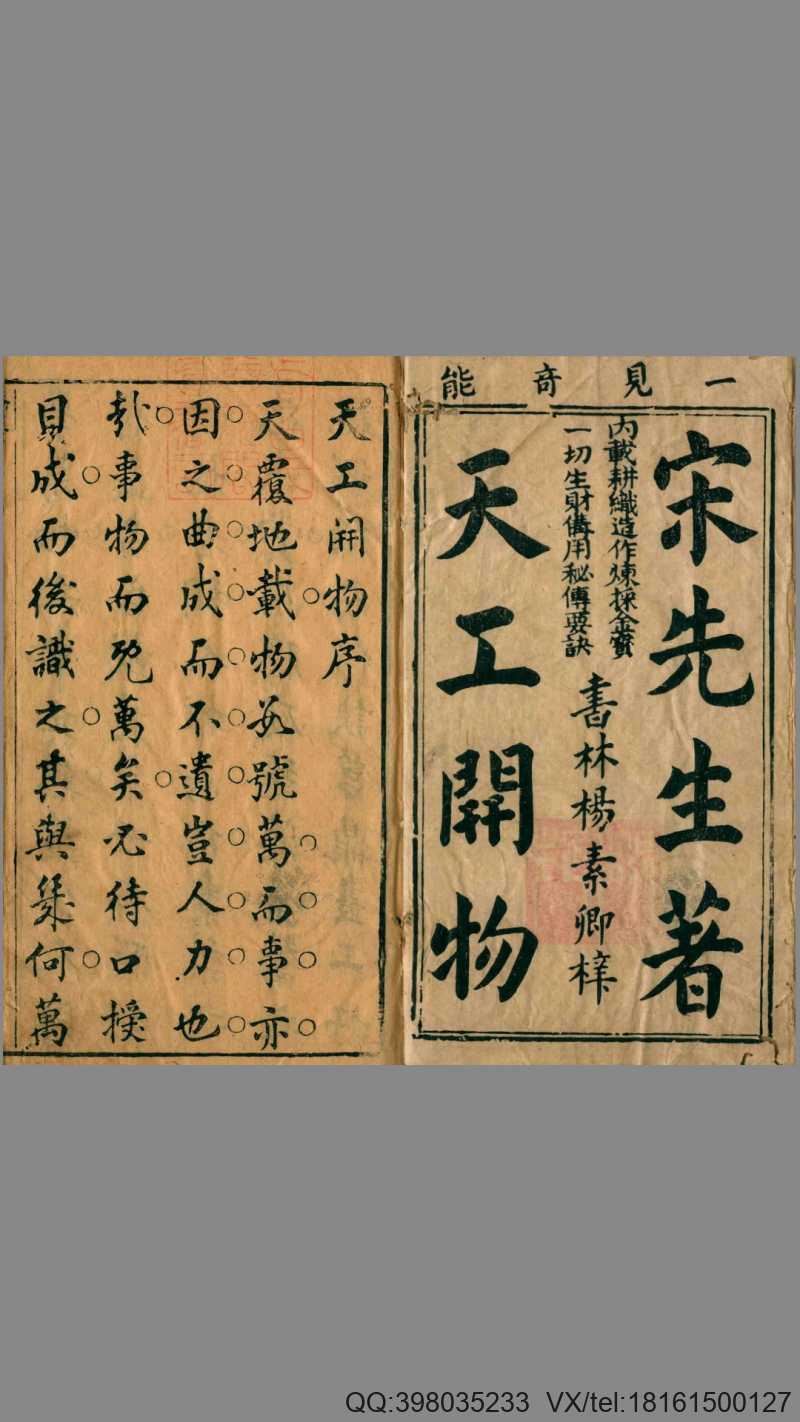 一見奇能
宋先生著
內載耕織造作煉採金寶
一切生財備用秘傳要訣
書林楊素卿梓
天工開物
天工開物序
天覆地載物數號萬而事亦
因之曲成而不遺豈人力也
哉事物而既萬矣必待口授
目成而後識之其與幾何萬
QQ:398035233 VX/tel:18161500127